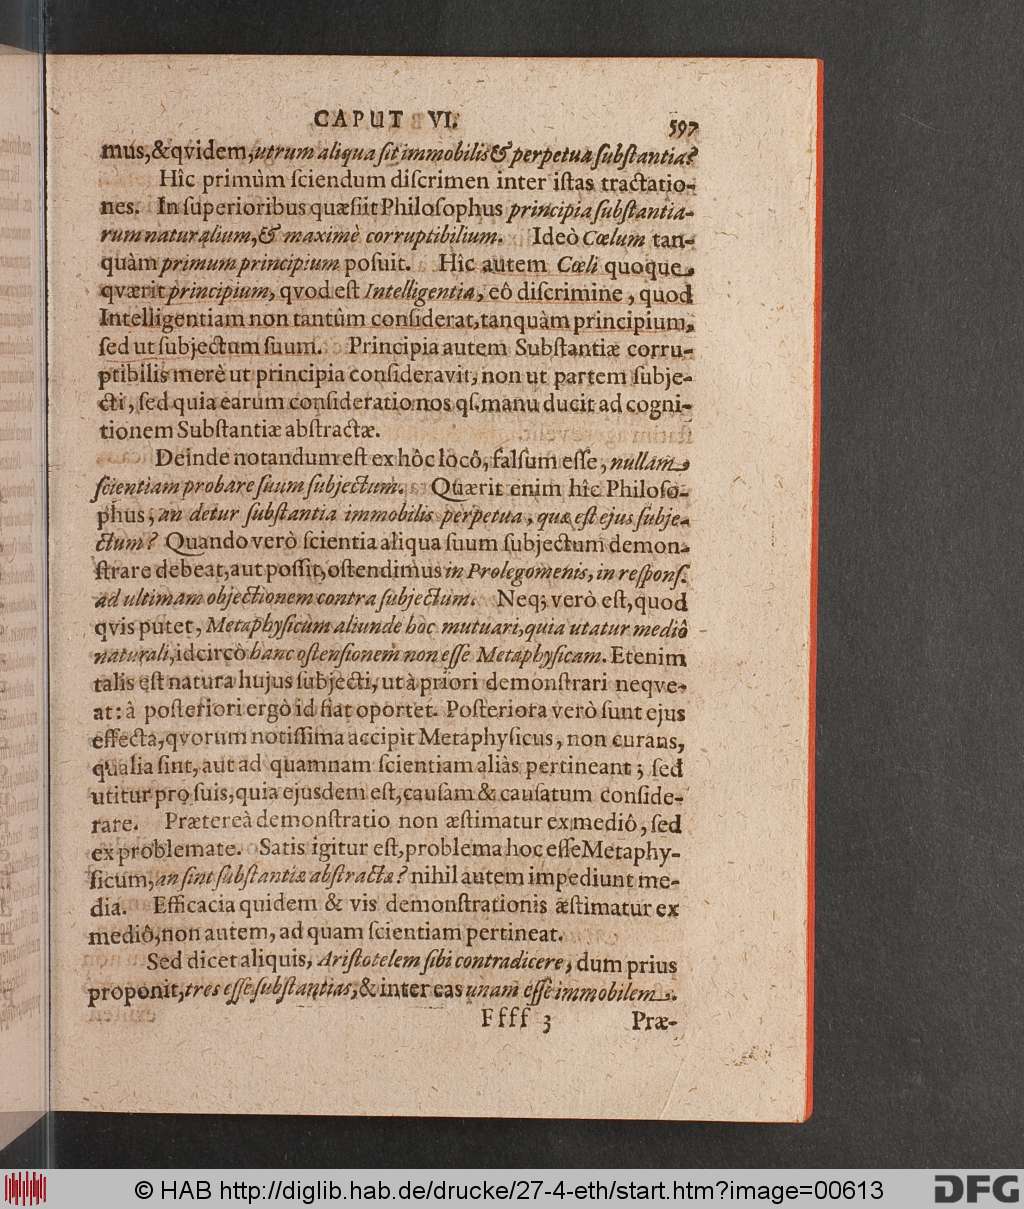 CAPUT VI. 597
mus, & qvidem, utrum aliqua sit immobilis & perpetua substantia?
Hîc primùm sciendum discrimen inter istas tractatio-
nes. In superioribus quæsiit Philosophus principia substantia-
rum naturalium, & maximè corruptibilium. Ideò Cœlum tan-
quàm primum principium posuit. Hîc autem Cœli quoque
qværit principium, qvod est Intelligentia, eô discrimine, quod
Intelligentiam non tantùm considerat, tanquàm principium,
sed ut subjectum suum. Principia autem Substantiæ corru-
ptibilis merè ut principia consideravit, non ut partem subje-
cti, sed quia earum consideratio nos qs. manu ducit ad cogni-
tionem Substantiæ abstractæ.
Deinde notandum est ex hôc locô, falsum esse, nullam
scientiam probare suum subjectum. Quærit enim hîc Philoso-
phus, an detur substantia immobilis perpetua, quæ est ejus subje-
ctum? Quando verò scientia aliqua suum subjectum demon-
strare debeat, aut possit, ostendimus in Prolegomenis, in respons.
ad ultimam objectionem contra subjectum. Neq; verò est, quod
qvis putet, Metaphysicum aliunde hoc mutuari, quia utatur mediô
naturali, idcircò hanc ostensionem non esse Metaphysicam. Etenim
talis est natura hujus subjecti, ut à priori demonstrari neqve-
at: à posteriori ergò id fiat oportet. Posteriora verò sunt ejus
effecta, qvorum notissima accipit Metaphysicus, non curans,
qualia sint, aut ad quamnam scientiam aliàs pertineant; sed
utitur pro suis, quia ejusdem est, causam & causatum conside-
rare. Prætereà demonstratio non æstimatur ex mediô, sed
ex problemate. Satis igitur est, problema hoc esse Metaphy-
sicum, an sint substantiæ abstractæ? nihil autem impediunt me-
dia. Efficacia quidem & vis demonstrationis æstimatur ex
mediô, non autem, ad quam scientiam pertineat.
Sed dicet aliquis, Aristotelem sibi contradicere, dum prius
proponit, tres esse substantias, & inter eas unam esse immobilem.
Ffff 3 Præ-
© HAB http://diglib.hab.de/drucke/27-4-eth/start.htm?image=00613
DFG